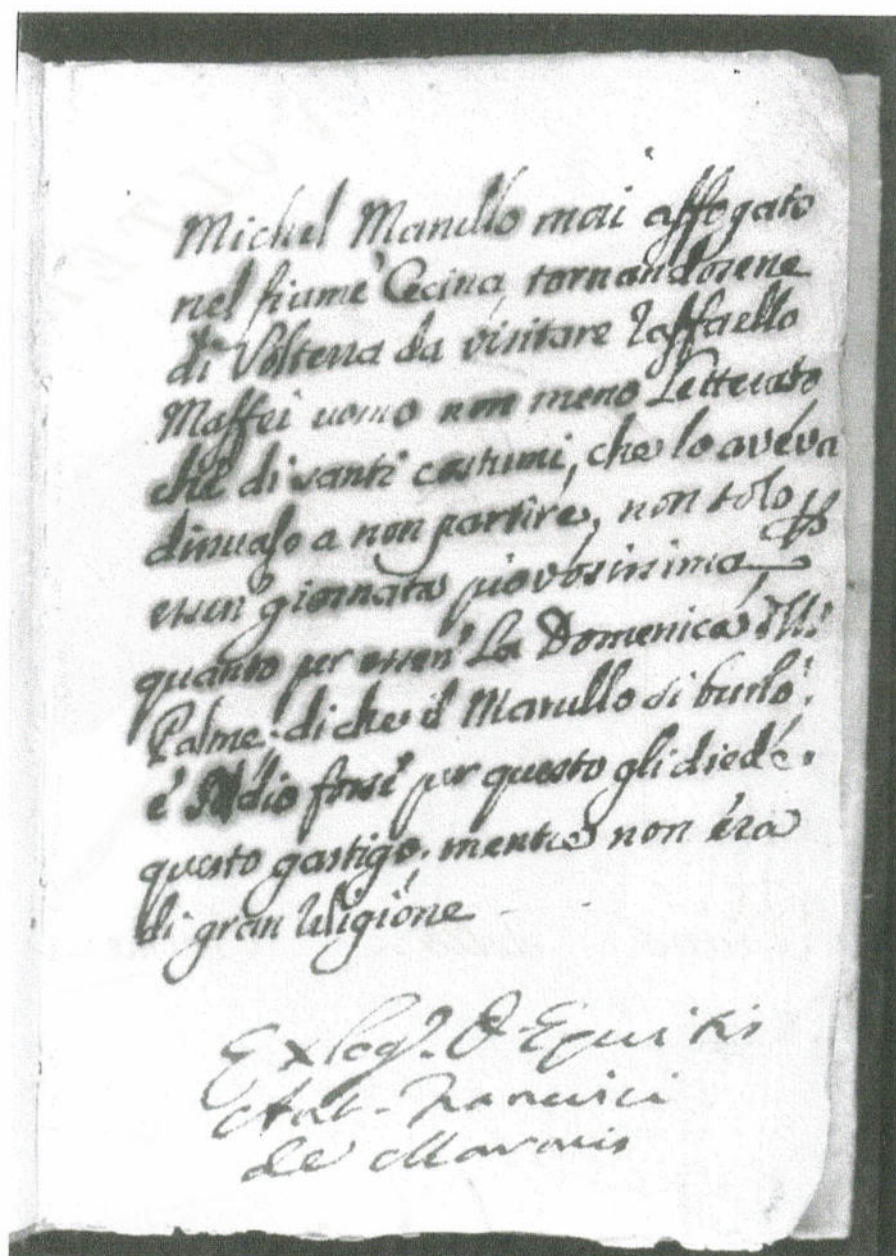 Michel Marullo morì affogato
nel fiume Cecina, tornandosene
di Volterra da visitare Raffaello
Maffei uomo non meno Letterato
che di santi costumi, che lo aveva
dissuaso a non partire, non solo p
essere giornata piovosissima,
quanto per essere La Domenica dell:
Palme, di che il Marullo si burlò,
e Iddio forse per questo gli diede
questo gastigo, mentre non era
di gran religione - -
Ex leg. D. Equitis
Ant. Francisci
de Marmis